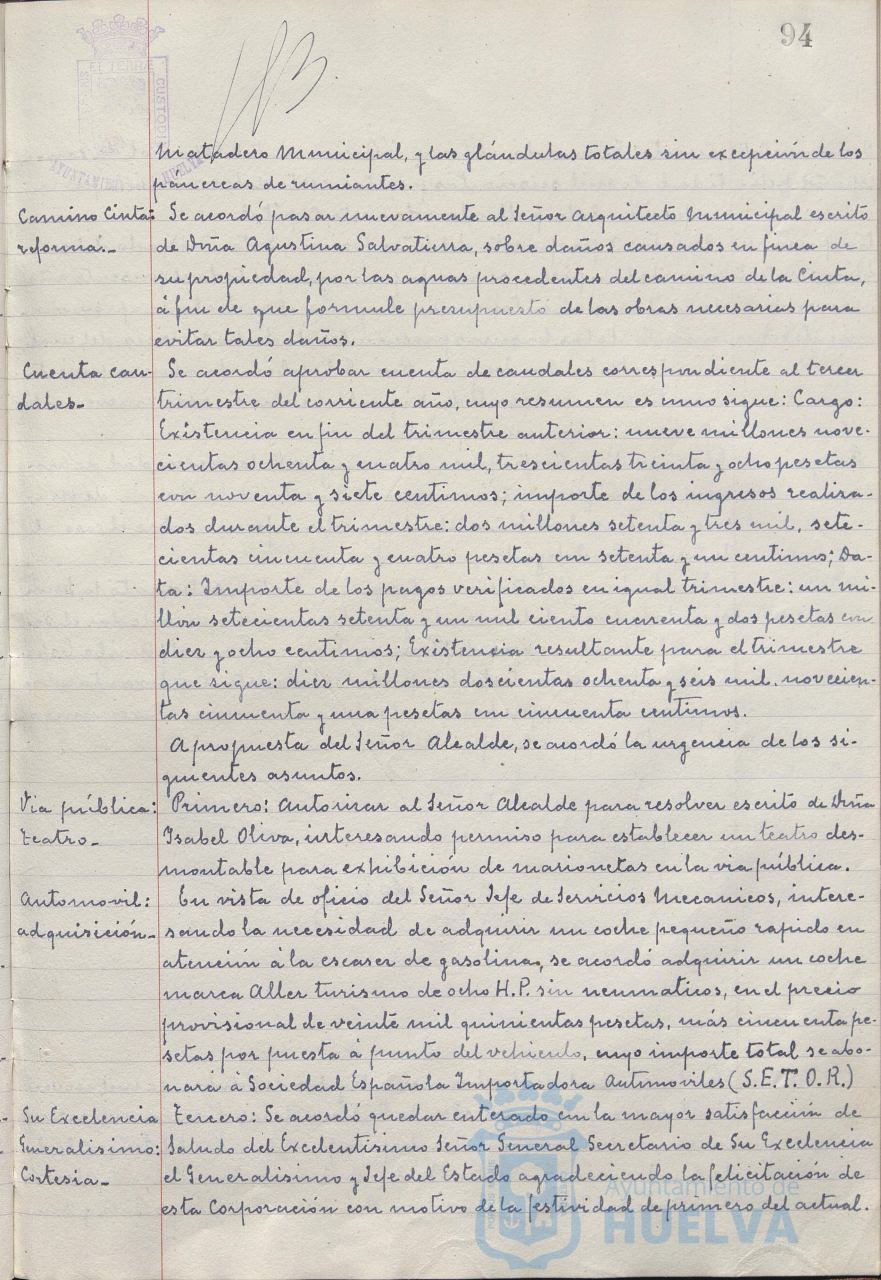 94
Matadero Municipal, y las glándulas totales sin excepción de los
páncreas de rumiantes.
Camino Cinta:
reforma.-
Se acordó pasar nuevamente al Señor Arquitecto Municipal escrito
de Dña Agustina Salvatierra, sobre daños causados en finca de
su propiedad, por las aguas procedentes del camino de la Cinta,
á fin de que formule presupuesto de las obras necesarias para
evitar tales daños.
Cuenta cau-
dales-
Se acordó aprobar cuenta de caudales correspondiente al tercer
trimestre del corriente año, cuyo resumen es como sigue: Cargo:
Existencia en fin del trimestre anterior: nueve millones nove-
cientas ochenta y cuatro mil, trescientas treinta y ocho pesetas
con noventa y siete centimos; importe de los ingresos realiza-
dos durante el trimestre: dos millones setenta y tres mil, sete-
cientas cincuenta y cuatro pesetas con setenta y un centimos; Da-
ta: Importe de los pagos verificados en igual trimestre: un mi-
llón setecientas setenta y un mil ciento cuarenta y dos pesetas con
diez y ocho centimos; Existencia resultante para el trimestre
que sigue: diez millones doscientas ochenta y seis mil. novecien-
tas cincuenta y una pesetas con cincuenta centimos.
A propuesta del Señor Alcalde, se acordó la urgencia de los si-
guientes asuntos.
Via pública:
teatro-
Primero: Autorizar al Señor Alcalde para resolver escrito de Dña
Isabel Oliva, interesando permiso para establecer un teatro des-
montable para exhibición de marionetas en la via pública.
Automovil:
adquisición-
En vista de oficio del Señor Jefe de Servicios Mecanicos, intere-
sando la necesidad de adquirir un coche pequeño rapido en
atención á la escasez de gasolina, se acordó adquirir un coche
marca Aller turismo de ocho H.P. sin neumaticos, en el precio
provisional de veinte mil quinientas pesetas, más cincuenta pe-
setas por puesta á punto del vehiculo, cuyo importe total se abo-
nará á Sociedad Española Importadora Automoviles (S.E.T.O.R.)
Su Excelencia
Generalisimo:
Cortesia-
Tercero: Se acordó quedar enterado con la mayor satisfacción de
Saludo del Excelentisimo Señor General Secretario de Su Excelencia
el Generalisimo y Jefe del Estado agradeciendo la felicitación de
esta Corporación con motivo de la festividad de primero del actual.
Ayuntamiento de
HUELVA